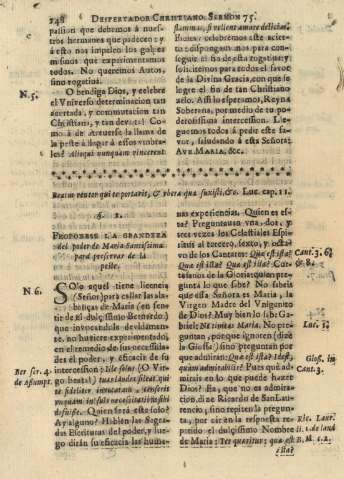 248 DESPERTADOR CHRISTIANO. SERMON 75.
passion que debemos à nuestros
hermanos que padecen: y
à esto nos impelen los golpes
mismos que experimentamos
todos. No queremos Autos,
sino rogativas.
N. 5.
O bendiga Dios, y celebre
el Vniverso determinacion tan
acertada, y commutacion tan
Christiana, y tan devota! Como
à de Atreverse la llama de
la peste à llegar à essos vmbrales?
Alioqui nunquam viverent
flammas, si vellent amare delicias.
Señores: celebremos este acierto:
dispongamonos para conseguir
el fin de esta rogativa; y
solicitemos para todos el favor
de la Divina Gracia, con que se
logre el fin de tan Christiano
zelo. Assi lo esperamos, Reyna
Soberana, por medio de tu poderosissima
intercession. Lleguemos
todos à pedir este favor,
saludando à esta Señora:
AVE MARIA, &c.
Beatus venter qui te portavit, & vbera quæ suxisti, &c. Luc. cap. 11.
§. 1.
PROPONESE LA GRANDEZA
del poder de Maria Santissima
para preservar de la
peste.
N. 6.
Solo aquel tiene licencia
(Señor) para callar las alabanças
de Maria (en sentir
de el dulcissimo Bernardo)
que invocandola devidamente,
no huviere experimentado,
en el remedio de sus necessidades
el poder, y eficacia de su
intercession:
Ber ser. 4.
de Assumpt.
Ille solus (O Virgo
beata) tuas laudes sileat, qui
te fideliter invocatam, senserit
vnquam in suis necessitatibus sibi
defuisse. Quien serà este solo?
Ay alguno? Hablen las Sagradas
Escrituras del poder, y luego
diràn su eficacia las humanas
experiencias. Quien es esta?
Preguntan vna, dos, y
tres vezes los Celestiales Espiritus
al tercero, sexto, y octavo
de los Cantares: Quæ est ista?
Quæ est ista? Quæ est ista?
Cant. 3. 6.
& 8.
Cortesanos
de la Gloria; quien pregunta
lo que sabe? No sabeis
que essa Señora es Maria, la
Virgen Madre del Vnigenito
de Dios? Muy bien lo sabe Gabriel:
Ne timeas Maria.
Luc. 1.
No preguntan,
porque ignoren (dize
la Glossa) sino preguntan porque
admiran: Quæ est ista? Idest,
quam admirabilis?
Glos. in
Cant. 3.
Pues què admiran
en lo que puede hazer
Dios? Ea, que no es admiracion,
dize Ricardo de San Laurencio;
sino repiten la pregunta,
por oir en la respuesta repetido
el dulcissimo Nombre
de Maria: Ter quæritur: quæ est
Ric. Laur.
li. 1. de laud.
B. M. c. 2.
ista?